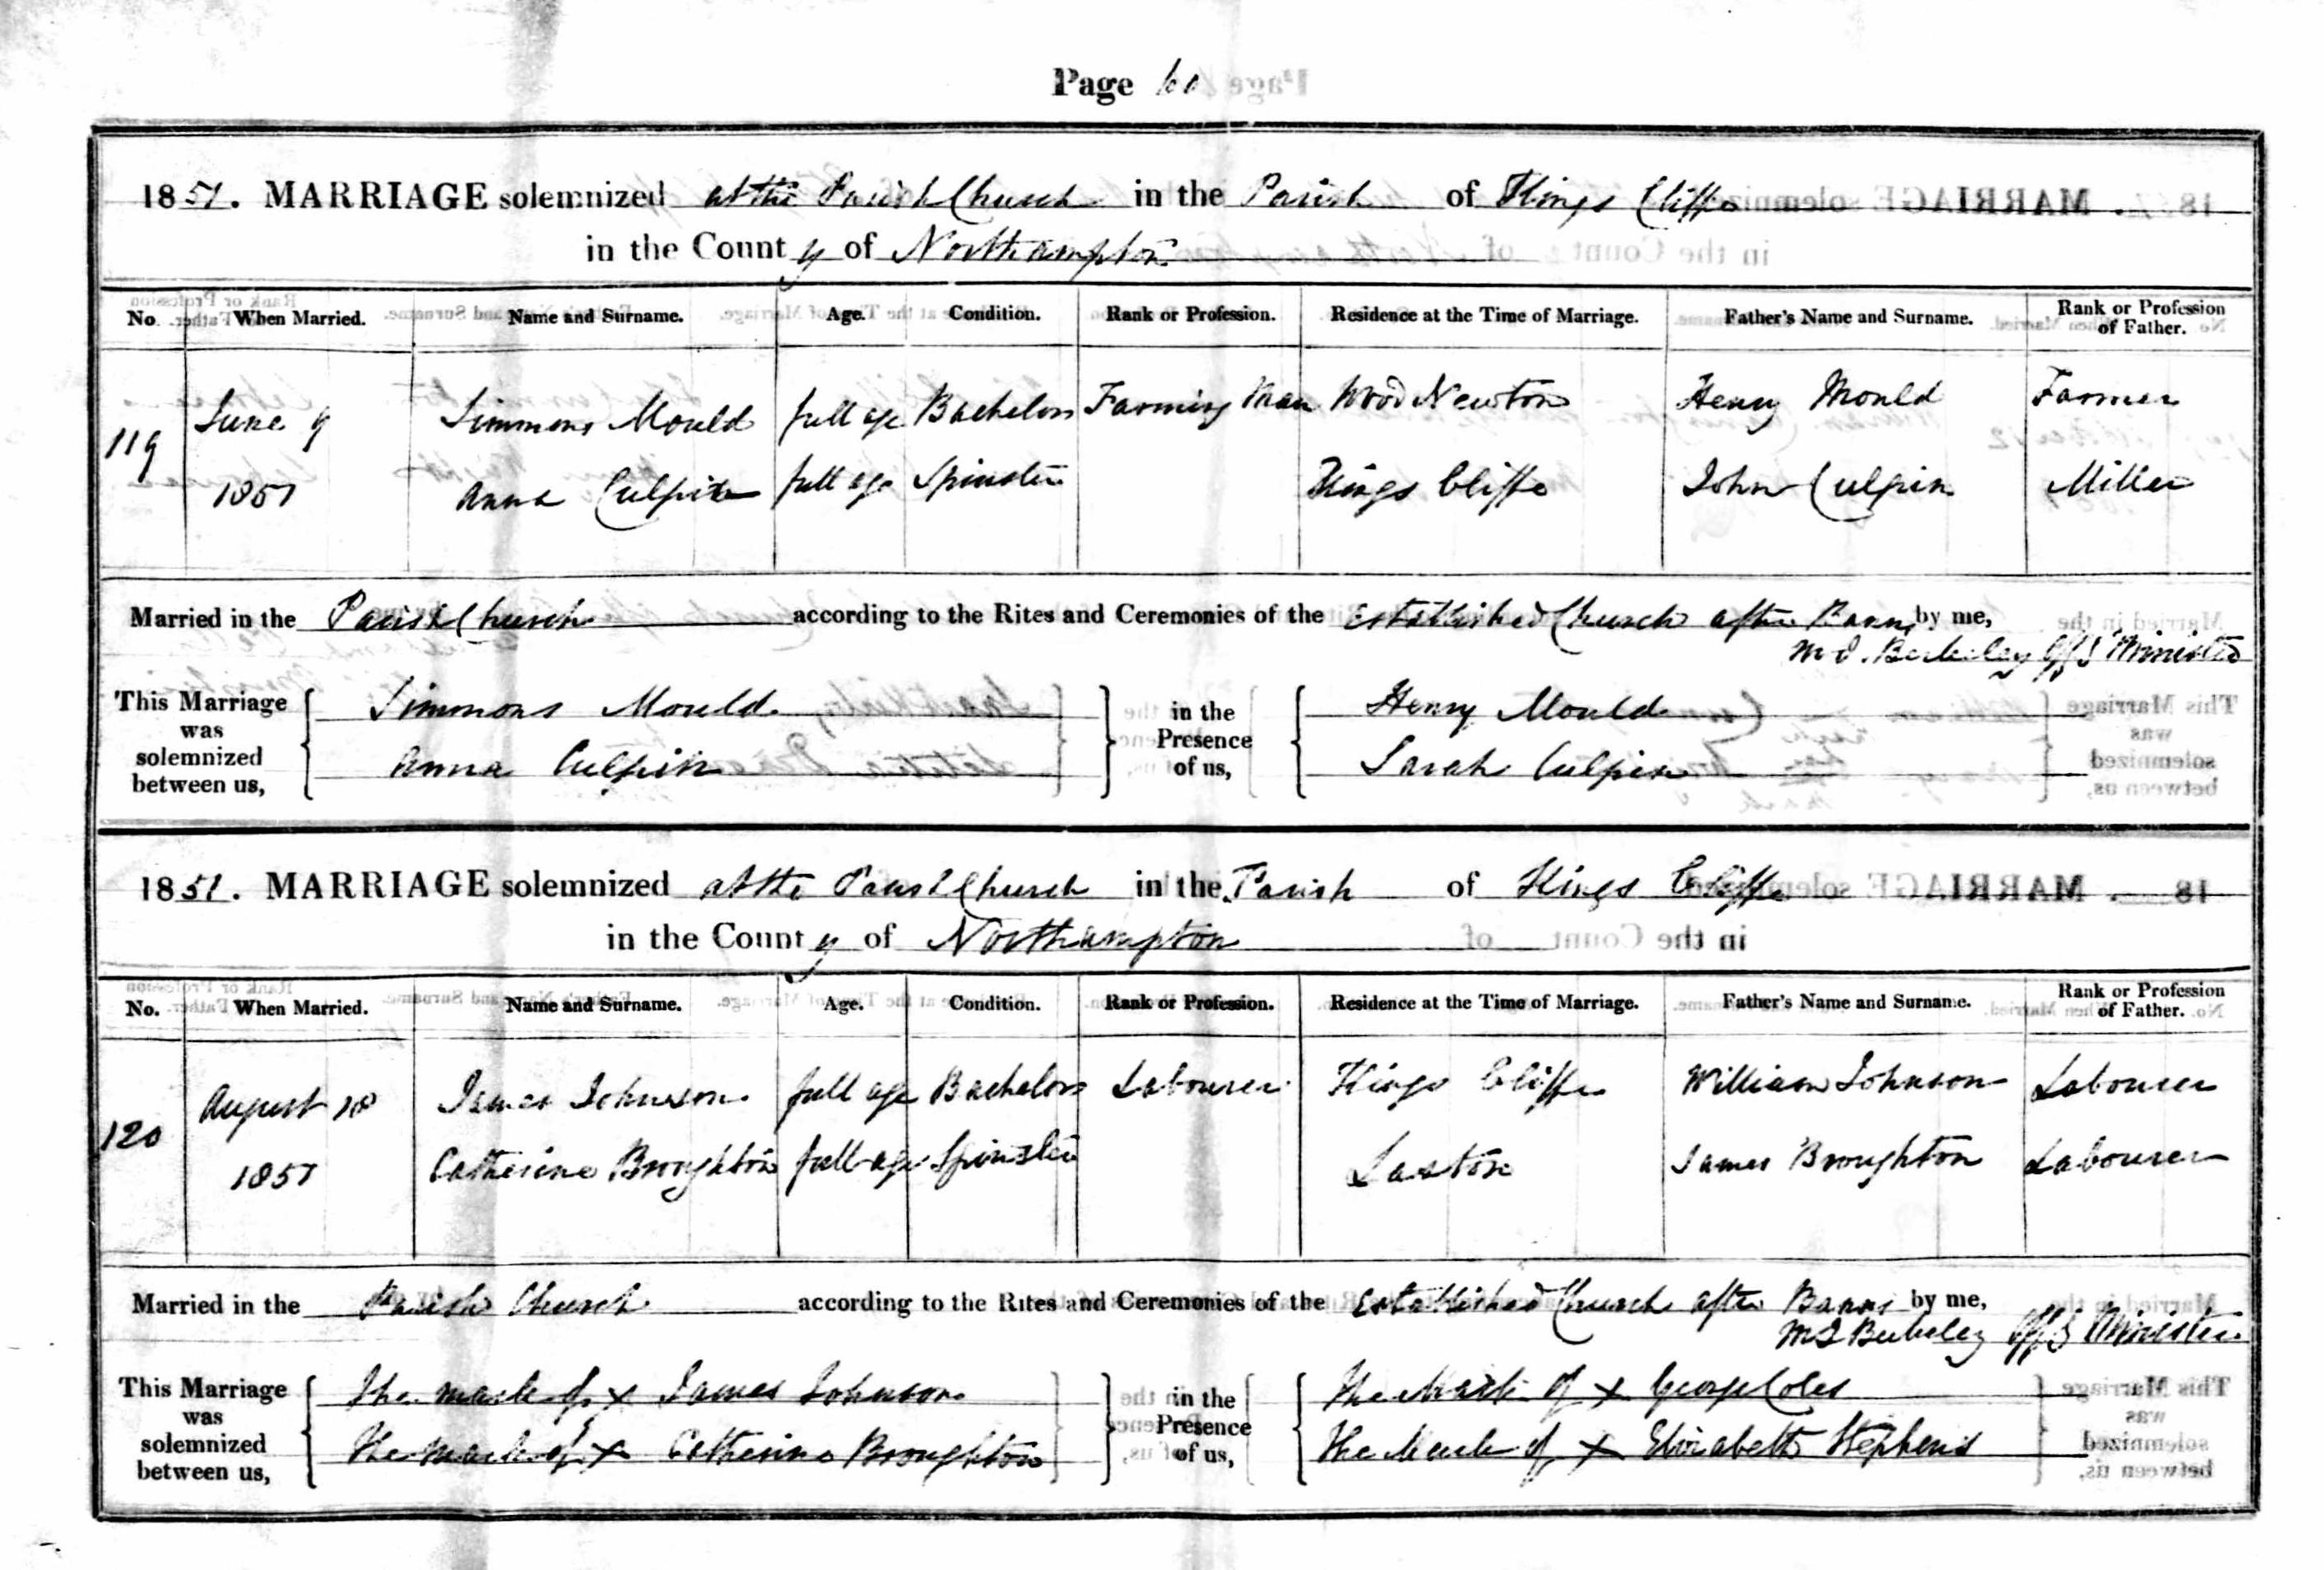 Page 60
1851. MARRIAGE solemnized at the Parish Church in the Parish of Kings Cliffe
in the County of Northampton
No. When Married. Name and Surname. Age. Condition. Rank or Profession. Residence at the Time of Marriage. Father's Name and Surname. Rank or Profession of Father.
119 June 9 Simmons Mould full age Bachelor Farming Man Wood Newton Henry Mould Farmer
1851 Anna Culpin full age Spinster Kings Cliffe John Culpin Miller
Married in the Parish Church according to the Rites and Ceremonies of the Established Church after Banns by me,
M J. Berkeley Offg Minister
This Marriage was solemnized between us, Simmons Mould in the Presence of us, Henry Mould
Anna Culpin Sarah Culpin
1851. MARRIAGE solemnized at the Parish Church in the Parish of Kings Cliffe
in the County of Northampton
No. When Married. Name and Surname. Age. Condition. Rank or Profession. Residence at the Time of Marriage. Father's Name and Surname. Rank or Profession of Father.
120 August 18 James Johnson full age Bachelor Labourer Kings Cliffe William Johnson Labourer
1851 Catherine Broughton full age Spinster Laxton James Broughton Labourer
Married in the Parish Church according to the Rites and Ceremonies of the Established Church after Banns by me,
M J Berkeley Offg Minister
This Marriage was solemnized between us, The mark of x James Johnson in the Presence of us, The Mark of x George Coles
The Mark of x Catherine Broughton The Mark of x Elizabeth Stephens